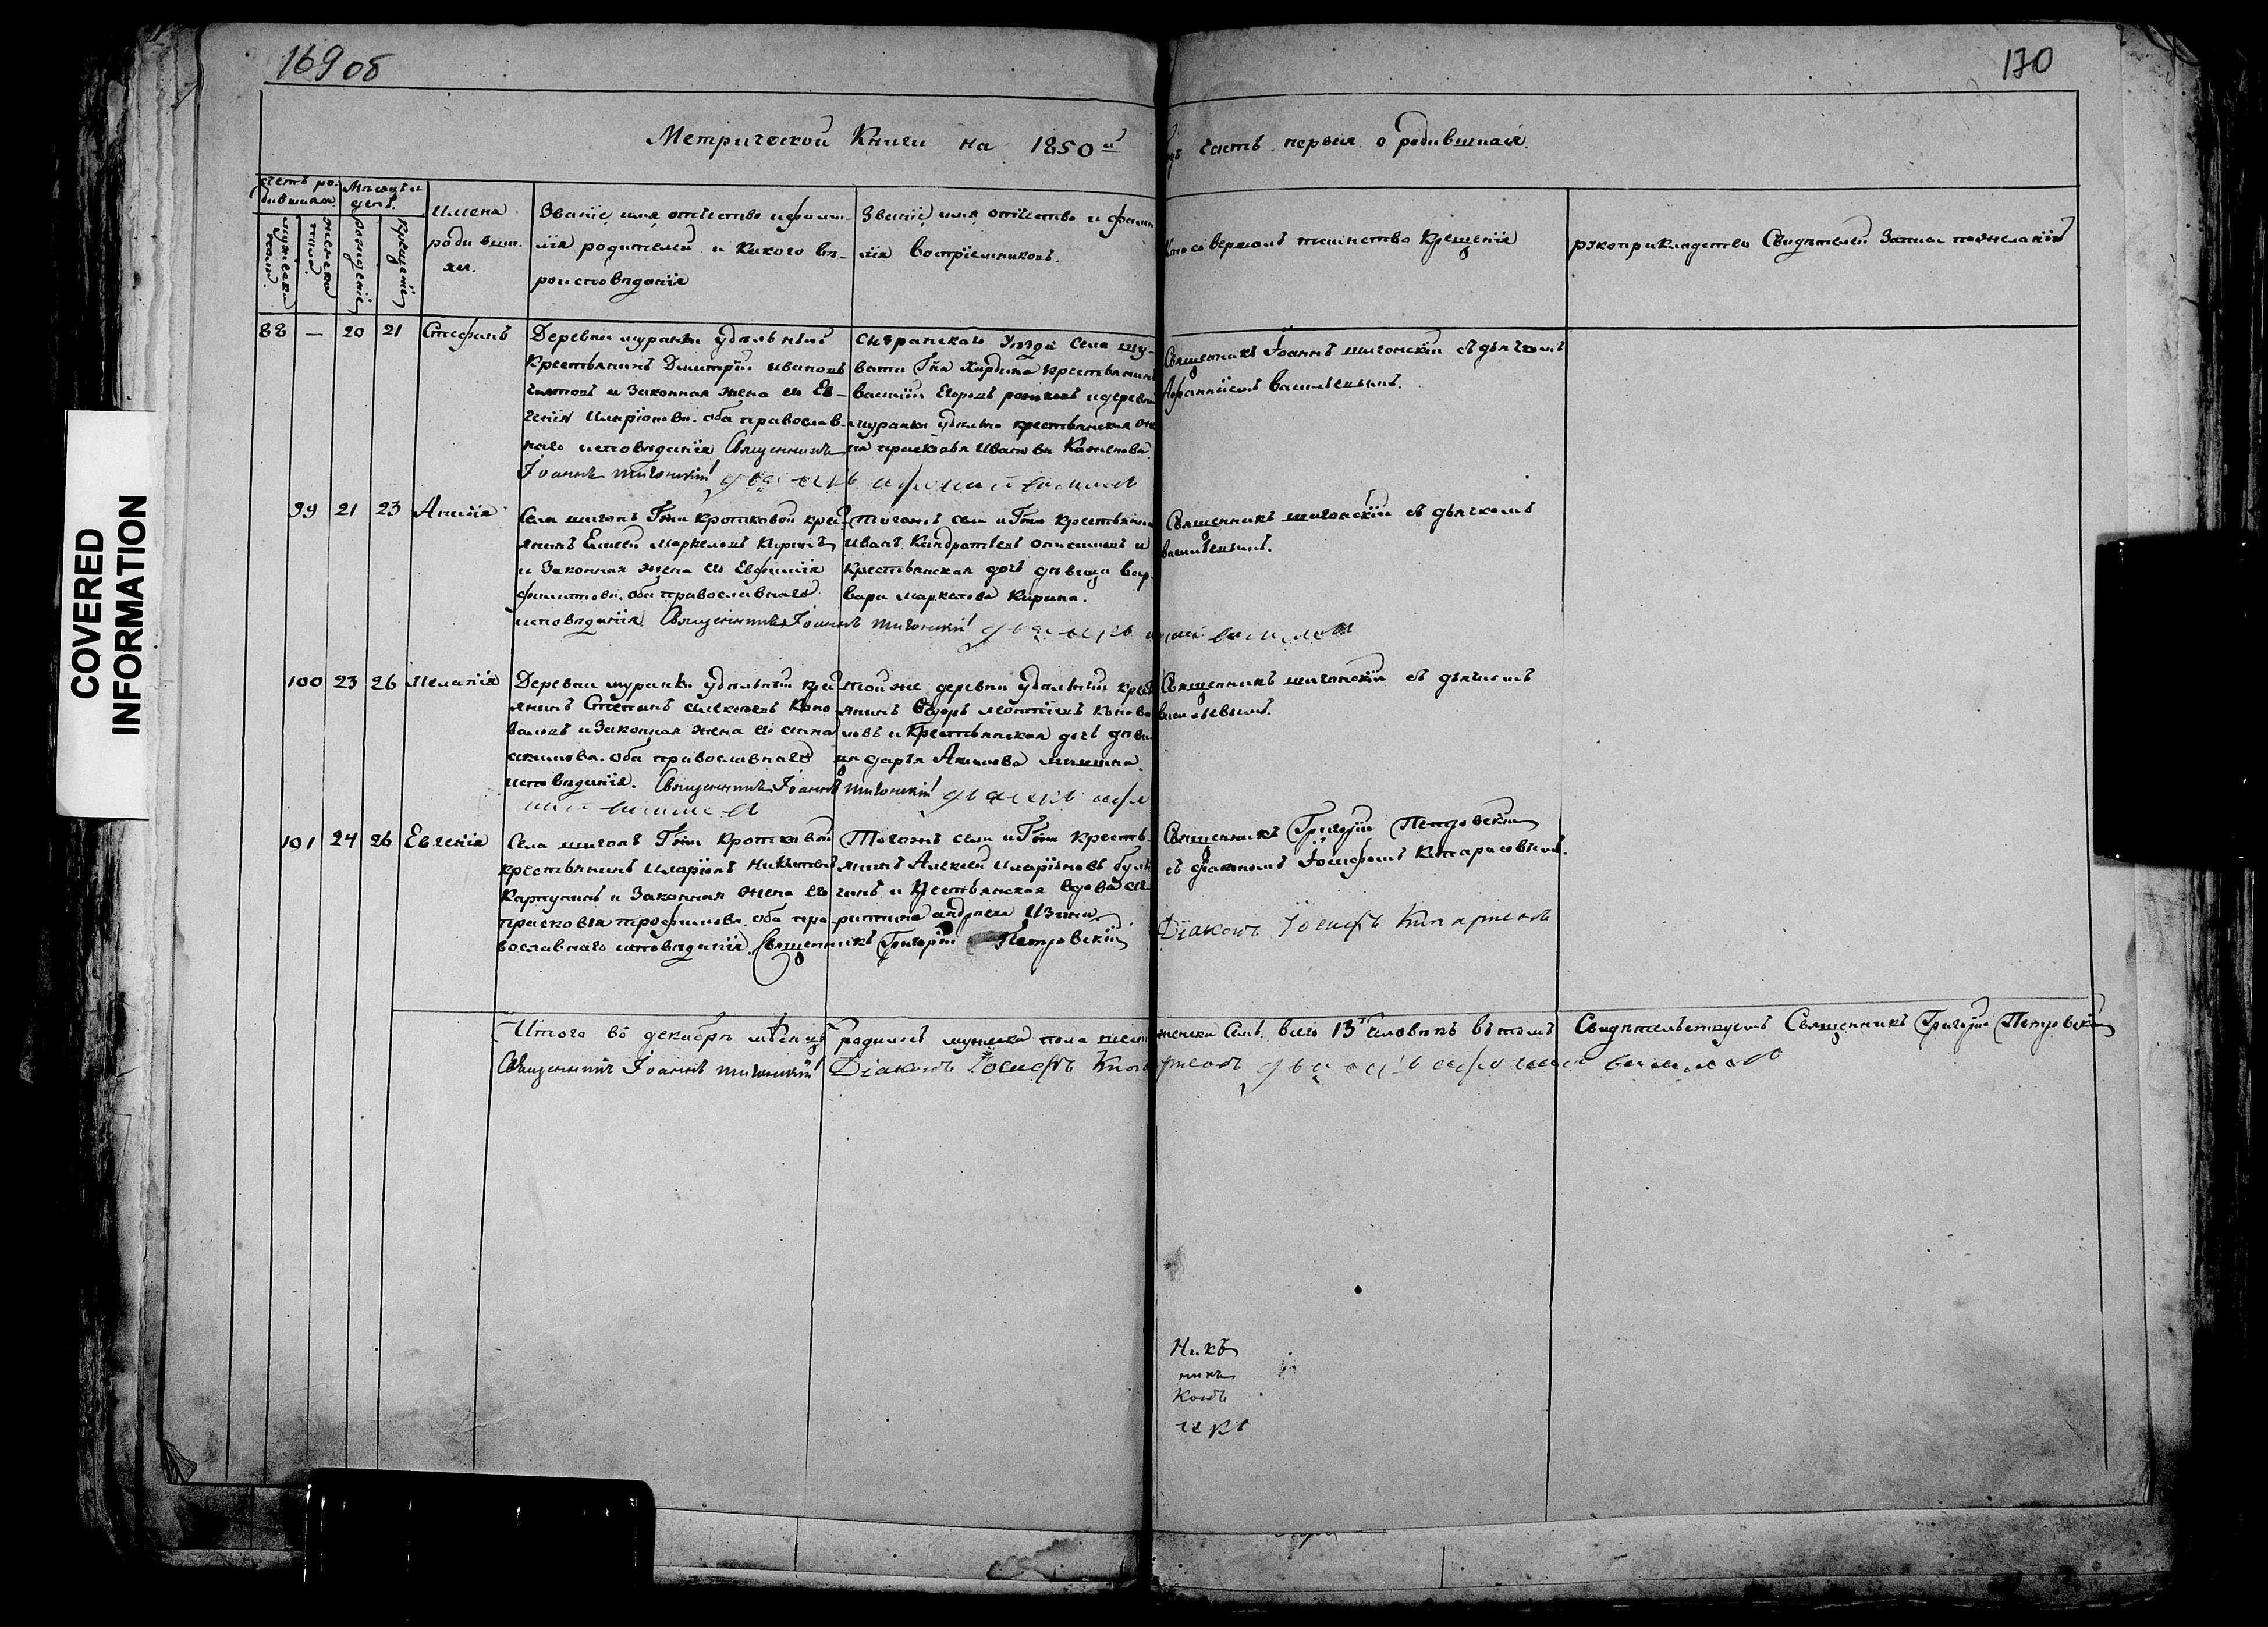 169 об
170
COVERED
INFORMATION
Метрической Книги на 1850й
часть первая о родившихся.
счетъ ро-
дившихся.
Мѣсяцъ и
день.
мужеска
пола.
женска
пола.
рожденіе
крещеніе
Имена
родивш.
хся.
Званіе имя отчество и фами-
лія родителей и какого вѣ-
роисповѣданія
Званіе, имя отчество и фами
лія воспріемниковъ.
Кто совершалъ таинство Крещенія
рукоприкладство Свидѣтелей записи по желанію
88 — 20 21 Стефанъ
Деревни муранки удѣльный
Крестьянинъ Димитрій Ивановъ
и Законная жена его Ев-
генія Иларіонова. оба православ-
наго исповѣданія Священникъ
Іоаннъ шигонскій
Сызранскаго Уѣзда Села шу-
крестьянинъ
василій Егоровъ и деревни
муранки удѣльно крестьянская
прасковья Иванова
Священникъ Іоаннъ шигонскій съ дьячкомъ
Афанасіемъ васильевымъ.
99 21 23 Анисія
Села шигонъ Гжи Кротковой крест
янинъ Елисей Маркеловъ Киринъ
и Законная жена его Евфимія
оба православнаго
исповѣданія. Священникъ Іоаннъ шигонскій
Тогожъ села и Гжи Крестьянинъ
Иванъ Кандратьевъ и
крестьянская дочь дѣвица вар-
вара маркелова Кирина.
Священникъ шигонскій съ дьячкомъ
васильевымъ.
100 23 26 Меланія
Деревни муранки удѣльный кре
янинъ Степанъ Алексѣевъ Коно
валовъ и Законная жена его анна
акимова. оба православнаго
исповѣданія. Священникъ Іоаннъ шигонскій
Той же деревни удѣльный крест
янинъ Ѳедоръ леонтіевъ Конова
ловъ и Крестьянская дочь дѣви
ца дарья Акимова
Священникъ шигонскій съ дьячкомъ
васильевымъ.
101 24 26 Евгенія
Села шигонъ Гжи Кротковой
крестьянинъ Иларіонъ Никитинъ
Карпунинъ и Законная жена его
прасковья трофимова. оба пра-
вославнаго исповѣданія. Священникъ Григорій Петровскій
Тогожъ села и Гжи кресть-
янинъ Алексѣй Иларіоновъ
и крестьянская вдова
андреева Изина.
Священникъ Григорій Петровскій
съ діакономъ Іосифомъ Кипарисовымъ.
Діаконъ Іосифъ Кипарисовъ
Итого въ декабрѣ мѣсяцѣ родилось мужеска пола шест
женска семь. всего 13ть человѣкъ въ томъ Свидѣтельствуемъ Священникъ Григорій Петровскій
Священникъ Іоаннъ шигонскій Діаконъ Іосифъ Кипарисовъ
никъ
никъ
конъ
чекъ